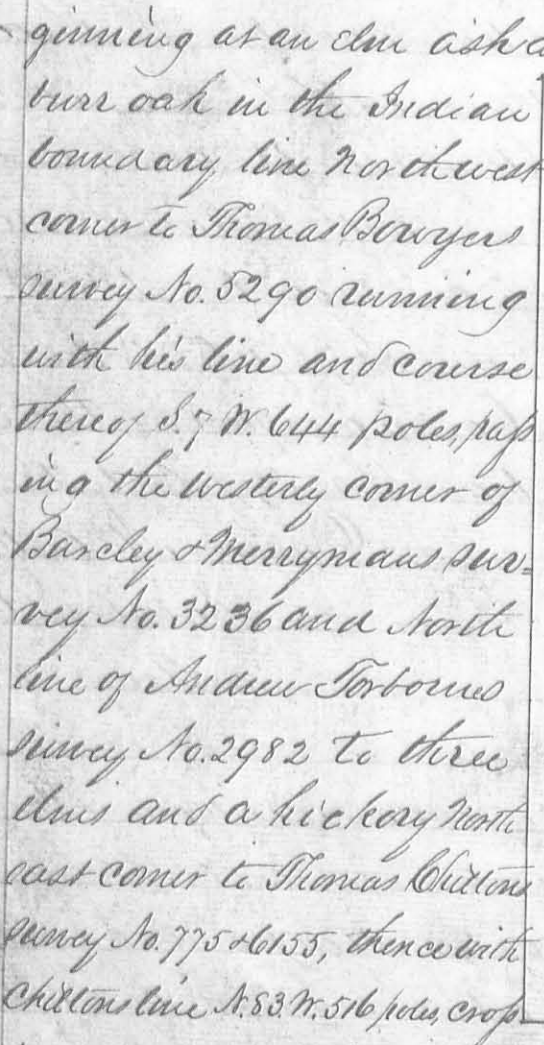 ginning at an elm ash a
burr oak in the Indian
boundary line North west
corner to Thomas Bowyers
survey No. 5290 running
with his line and course
thereof S. 7 W. 644 poles, pass
ing the westerly corner of
Barcley & Merrymans sur=
vey No. 3236 and North
line of Andrew Torbornes
survey No. 2982 to three
elms and a hickory North
east corner to Thomas Chiltons
survey No. 775 & 6155, thence with
Chiltons line N. 83. W. 516 poles, cross